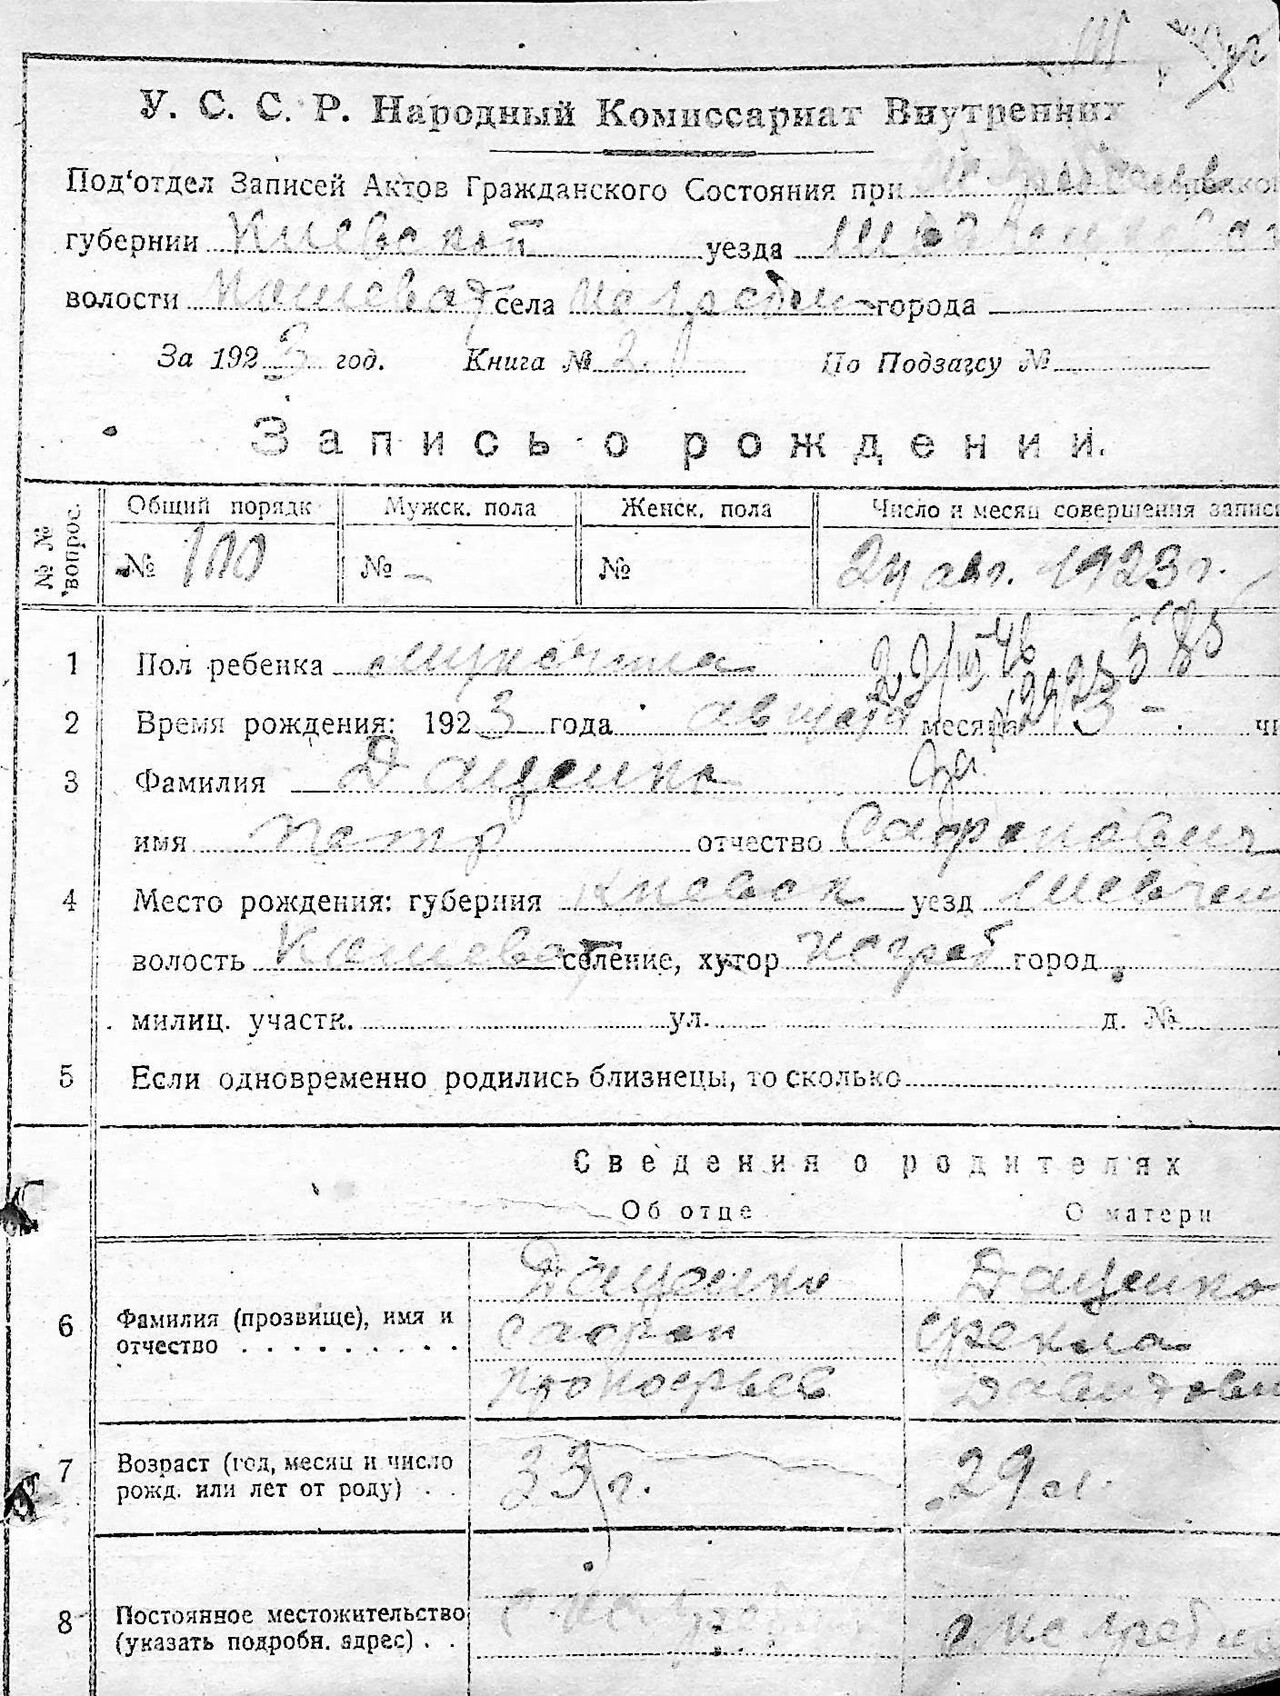 У. С. С. Р. Народный Комиссариат Внутренних
Под'отдел Записей Актов Гражданского Состояния при
губернии Киевской уезда
волости Кошеват села города
За 1923 год. Книга № 2. По Подзагсу №
Запись о рождении.
№ № вопрос. Общий порядк Мужск. пола Женск. пола Число и месяц совершения записи
№ 100 № – № 24 авг. 1923 г.
1 Пол ребенка мужчина
2 Время рождения: 1923 года августа месяца чи
3 Фамилия Даценко
имя Петр отчество Сафронович
4 Место рождения: губерния Киевск уезд Шевчен
волость Кошеват селение, хутор город
милиц. участк. ул. д. №
5 Если одновременно родились близнецы, то сколько
Сведения о родителях
Об отце О матери
Даценко Даценко
6 Фамилия (прозвище), имя и Сафрон Фекла
отчество . . . . . . . . . Прокофьев Давидови
7 Возраст (год, месяц и число 33 г. 29 л.
рожд. или лет от роду) . .
8 Постоянное местожительство
(указать подробн. адрес) . .